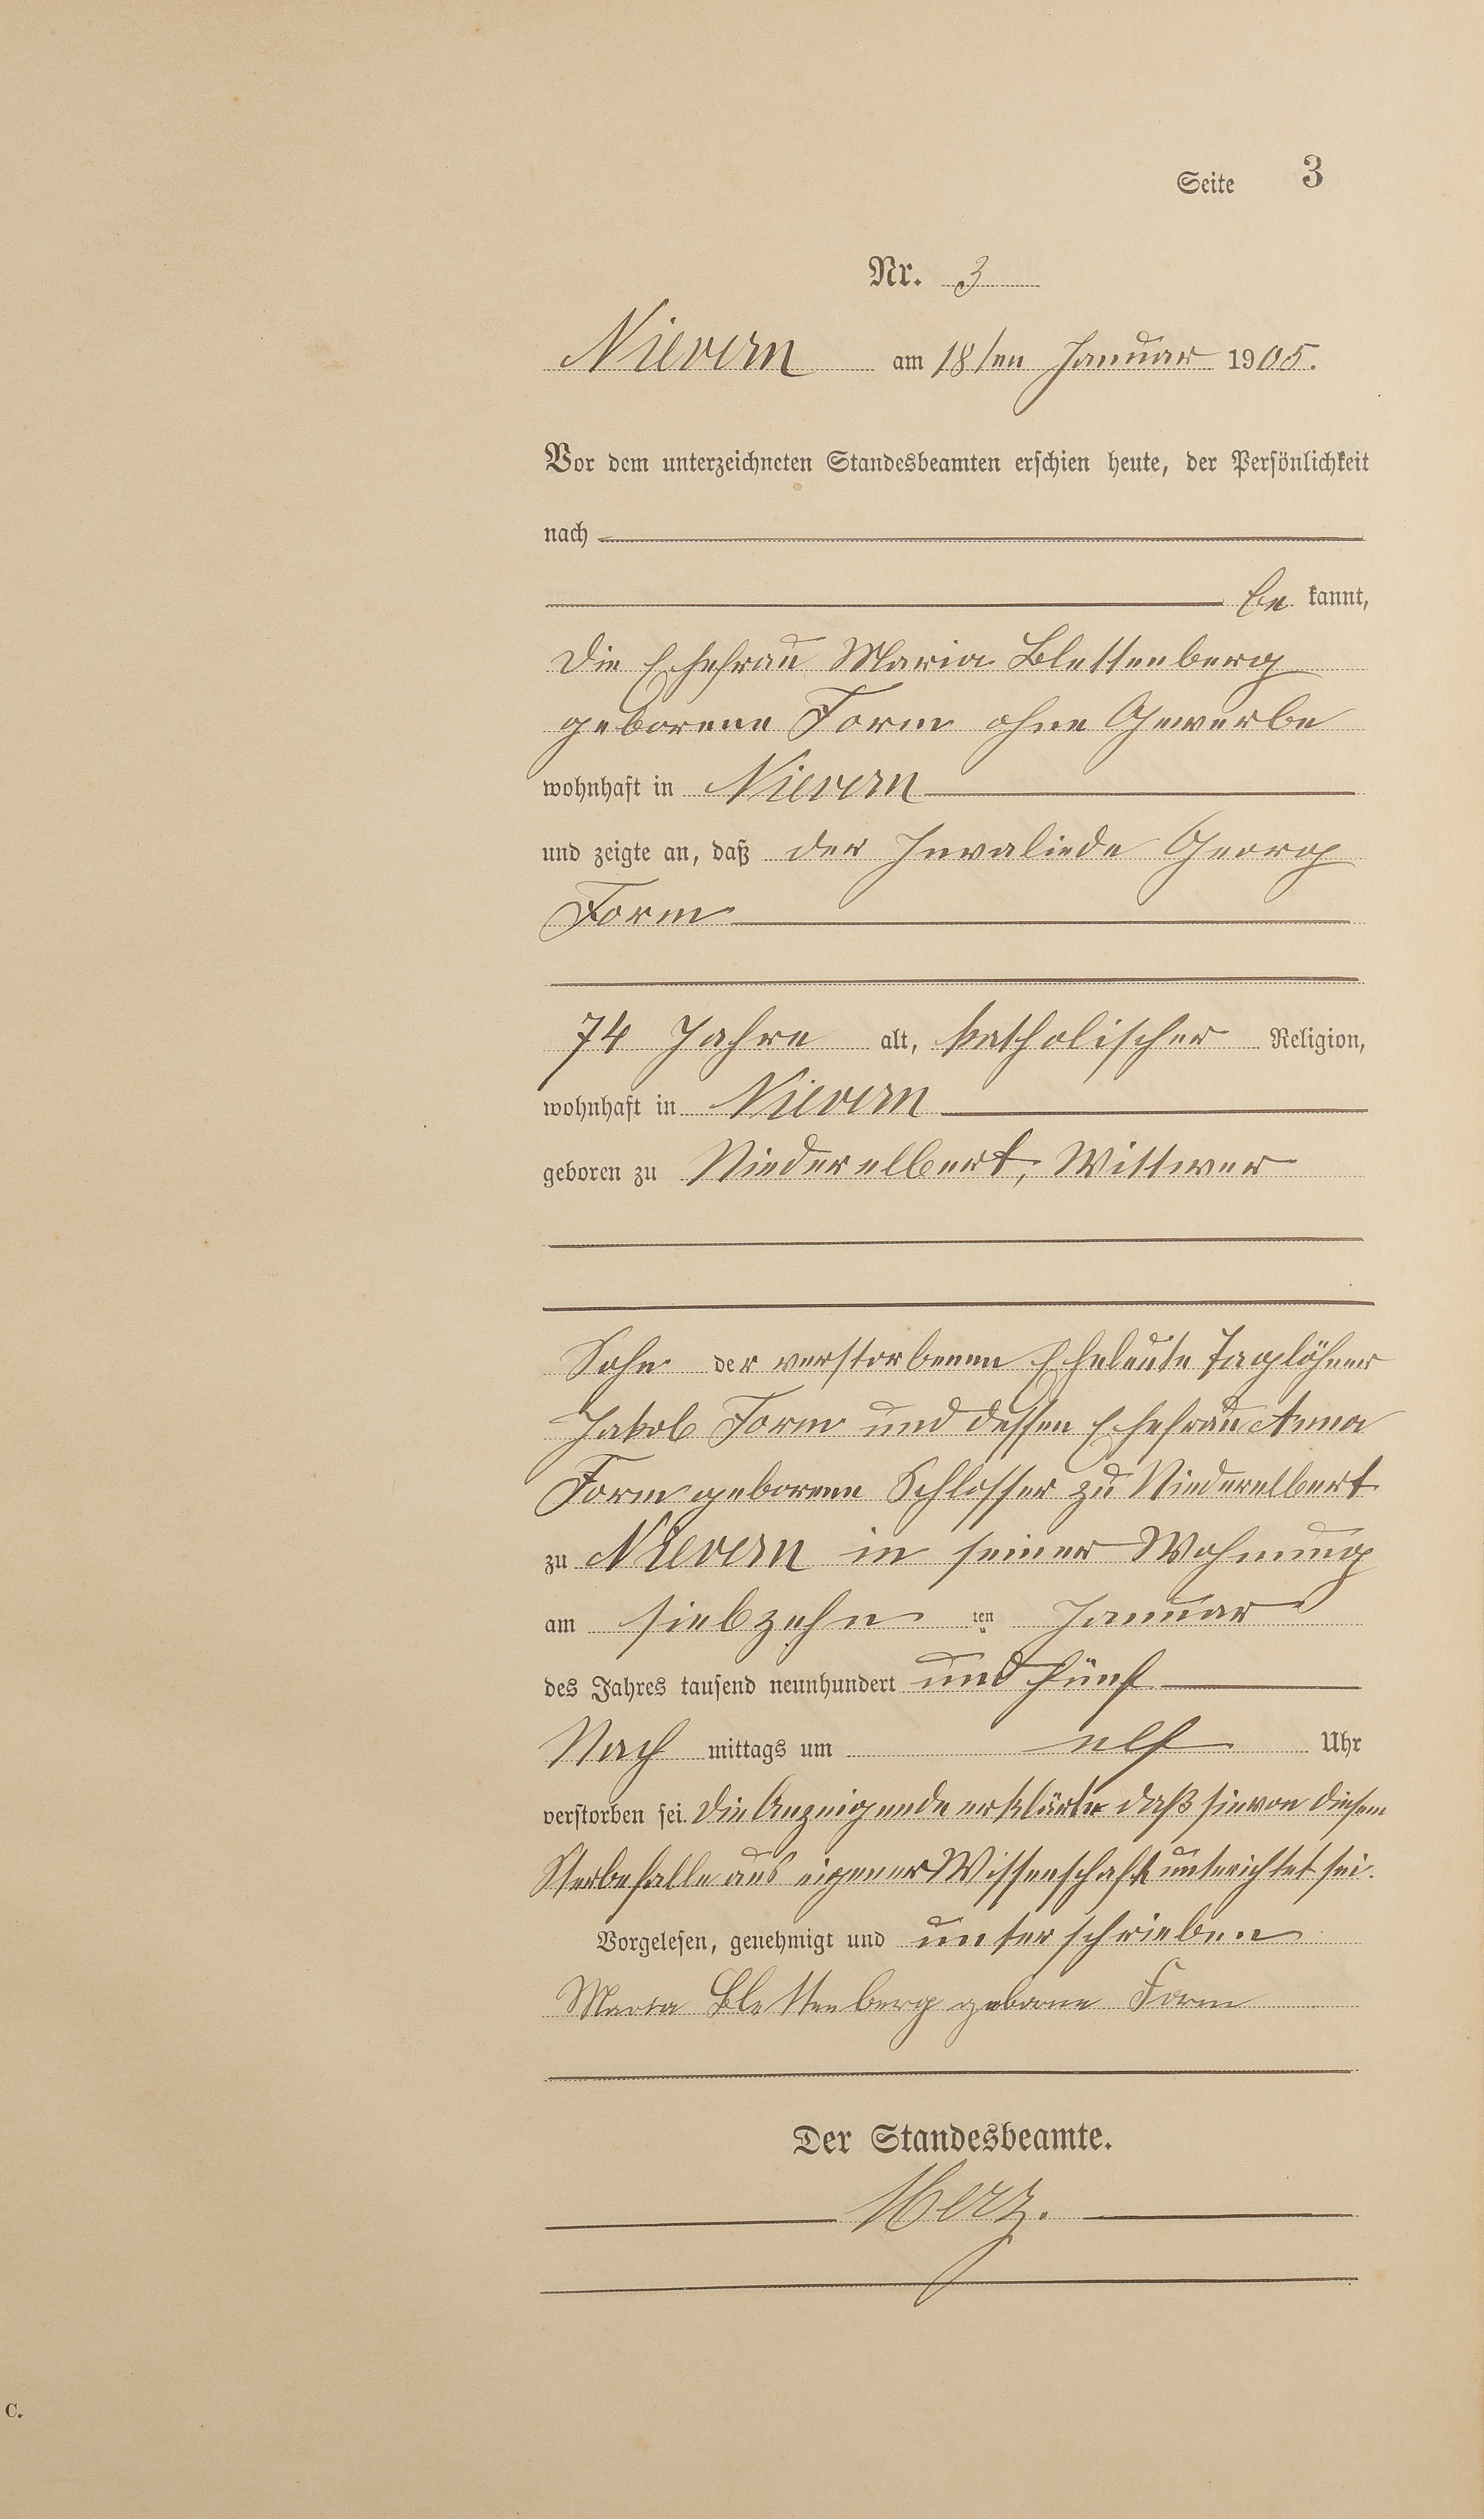 Seite 3
Nr. 3
Nievern am 18ten Januar 1905.
Vor dem unterzeichneten Standesbeamten erschien heute, der Persönlichkeit
nach
be kannt,
die Ehefrau Maria Blettenberg
geborene Form ohne Gewerbe
wohnhaft in Nievern
und zeigte an, daß der Invaliede Georg
Form
74 Jahre alt, katholischer Religion,
wohnhaft in Nievern
geboren zu Niederelbert, Wittwer
Sohn der verstorbenen Eheleute Taglöhner
Jakob Form und dessen Ehefrau Anna
Form geborene Schlosser zu Niederelbert
zu Nievern in seiner Wohnung
am siebzehn ten Januar
des Jahres tausend neunhundert und fünf
Nach mittags um elf Uhr
verstorben sei. Die Anzeigende erklärte daß sie von diesem
Sterbefalle aus eigener Wissenschaft unterichtet sei.
Vorgelesen, genehmigt und unterschrieben
Maria Blettenberg geborne Form
Der Standesbeamte.
Merz.
C.